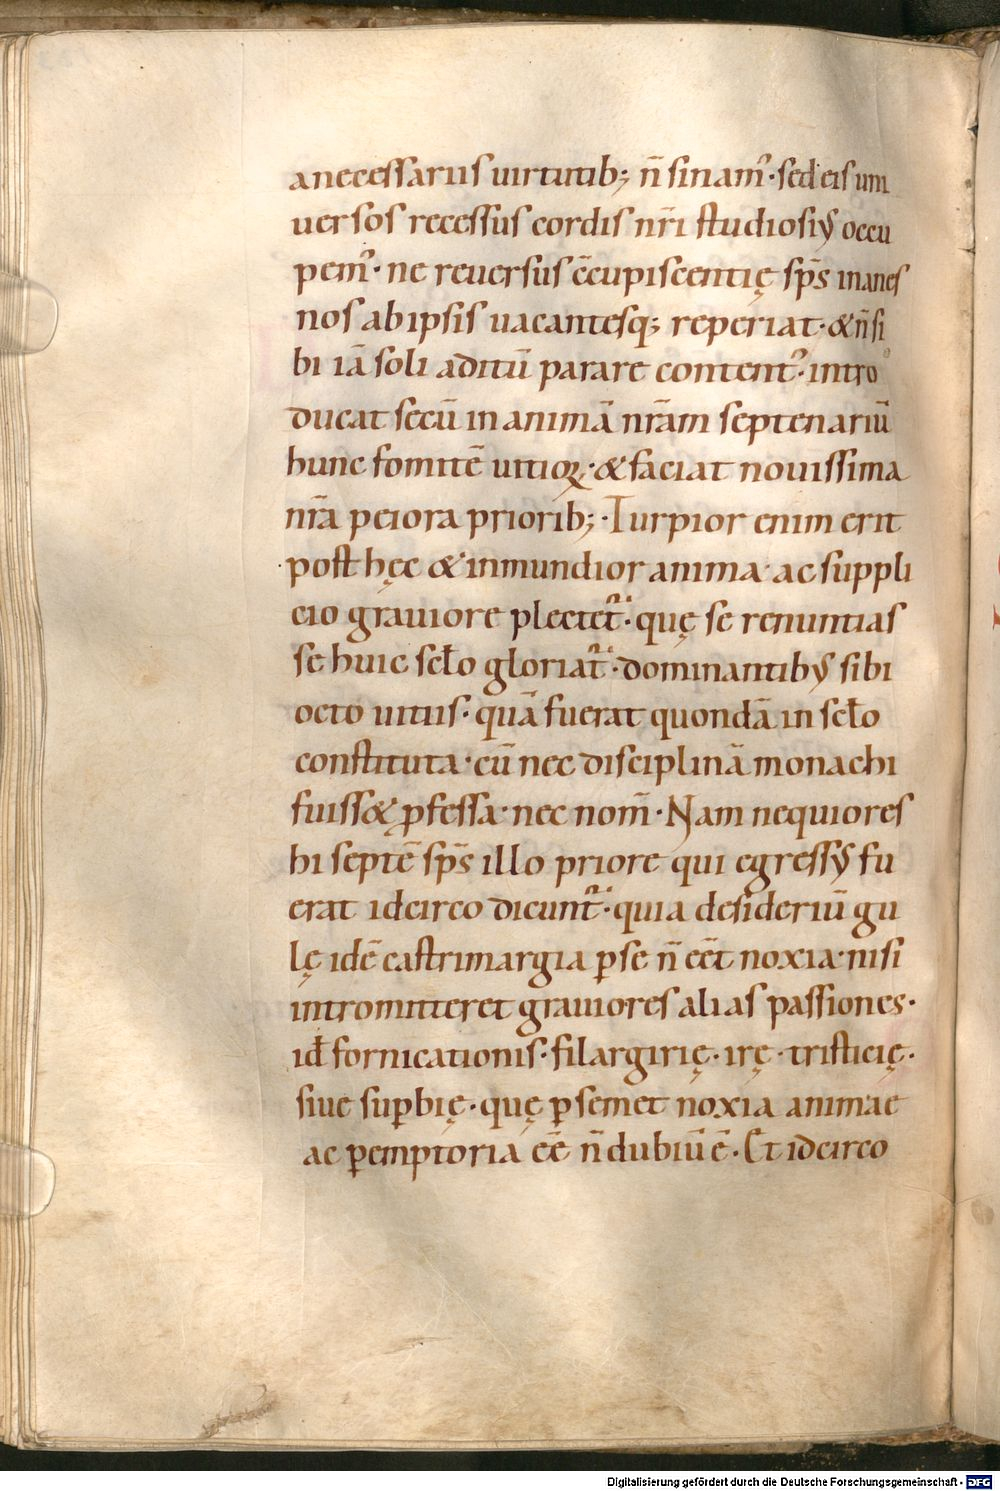 a necessariis uirtutib; n̄ sinam᷒· sed eis uni
uersos recessus cordis nr̄i studiosiꝰ occu
pem᷒· ne reuersus c̄cupiscentię sp̄s inanes
nos ab ipsis uacantesq; reperiat· & n̄ si
bi iā soli aditū parare content᷒· intro
ducat secū in animā nr̄am septenariū
hunc fomitē uitioꝝ· & faciat nouissima
nr̄a peiora priorib;· Turpior enim erit
post hęc & inmundior anima· ac suppli
cio grauiore plectet᷑· quę se renuntias
se huic sc̄lo gloriat᷑· dominantibꝰ sibi
octo uitiis· quā fuerat quondā in sc̄lo
constituta· cū nec disciplinā monachi
fuiss& ꝓfessa· nec nom̄· Nam nequiores
hi septē sp̄s illo priore qui egressꝰ fu
erat idcirco dicunt᷑· quia desideriū gu
lę idē castrimargia ꝑ se n̄ eēt noxia· nisi
intromitteret grauiores alias passiones·
id̄ fornicationis· filargirię· irę· tristicię·
siue suꝑbię· quę ꝑ semet noxia animae
ac ꝑemptoria eē n̄ dubiū ē· Et idcirco
Digitalisierung gefördert durch die Deutsche Forschungsgemeinschaft - DFG